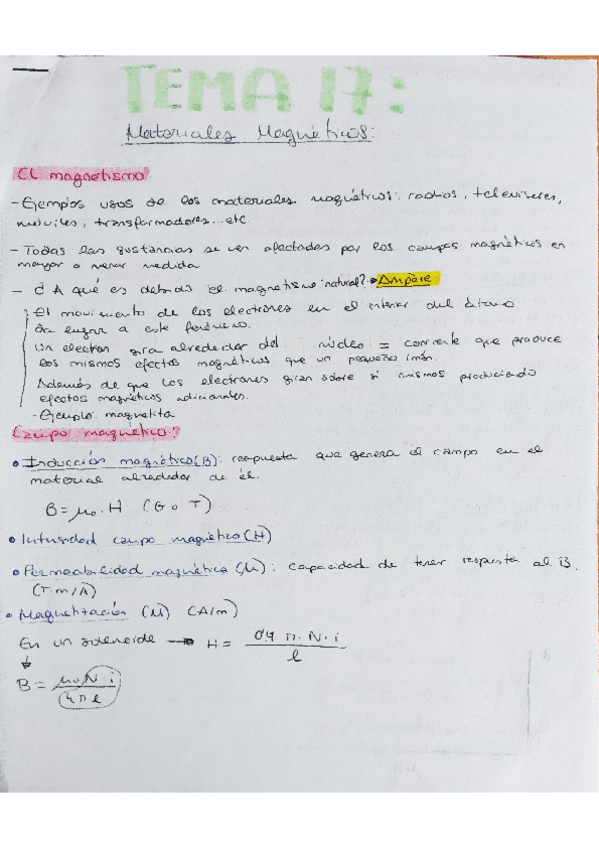 TEMA 17:
Materiales Magnéticos:
El magnetismo:
- Ejemplos usos de los materiales magnéticos: radios, televisores,
móviles, transformadores...etc
- Todas las sustancias se ven afectadas por los campos magnéticos en
mayor o menor medida
- ¿A qué es debido el magnetismo natural? → Ampère
El movimiento de los electrones en el interior del átomo
da origen a este fenómeno.
Un electrón gira alrededor del núcleo = corriente que produce
los mismos efectos magnéticos que un pequeño imán.
Además de que los electrones giran sobre sí mismos produciendo
efectos magnéticos adicionales.
- Ejemplo: magnetita
Campo magnético:
• Inducción magnética (B): respuesta que genera el campo en el
material alrededor de él.
B = μ₀ · H (G o T)
• Intensidad campo magnético (H)
• Permeabilidad magnética (μ): capacidad de tener respuesta al B.
(T·m/A)
• Magnetización (M) (A/m)
En un solenoide → H = 0'4 π · N · i / l
↓
B = μ₀ N · i / 4 π l